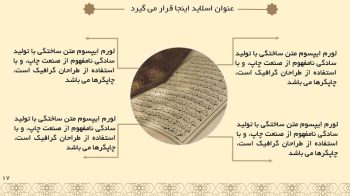 عنوان اسلاید اینجا قرار می گیرد
لورم ایپسوم متن ساختگی با تولید
سادگی نامفهوم از صنعت چاپ، و با
استفاده از طراحان گرافیک است،
چاپگرها می باشد
لورم ایپسوم متن ساختگی با تولید
سادگی نامفهوم از صنعت چاپ، و با
استفاده از طراحان گرافیک است،
چاپگرها می باشد
لورم ایپسوم متن ساختگی با تولید
سادگی نامفهوم از صنعت چاپ، و با
استفاده از طراحان گرافیک است،
چاپگرها می باشد
لورم ایپسوم متن ساختگی با تولید
سادگی نامفهوم از صنعت چاپ، و با
استفاده از طراحان گرافیک است،
چاپگرها می باشد
۱۷